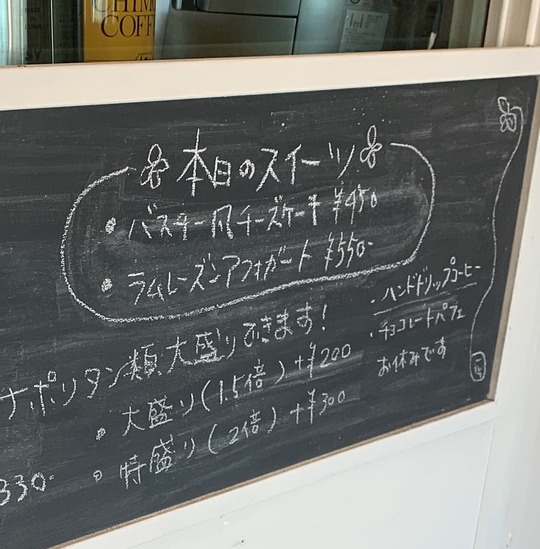 COFF
本日のスイーツ
・バスチー風チーズケーキ ¥450
・ラムレーズンアフォガート ¥550-
ナポリタン類大盛りできます!
・大盛り(1.5倍)+¥200
・特盛り(2倍)+¥300
330-
・ハンドドリップコーヒー
・チョコレートパフェ
お休みです